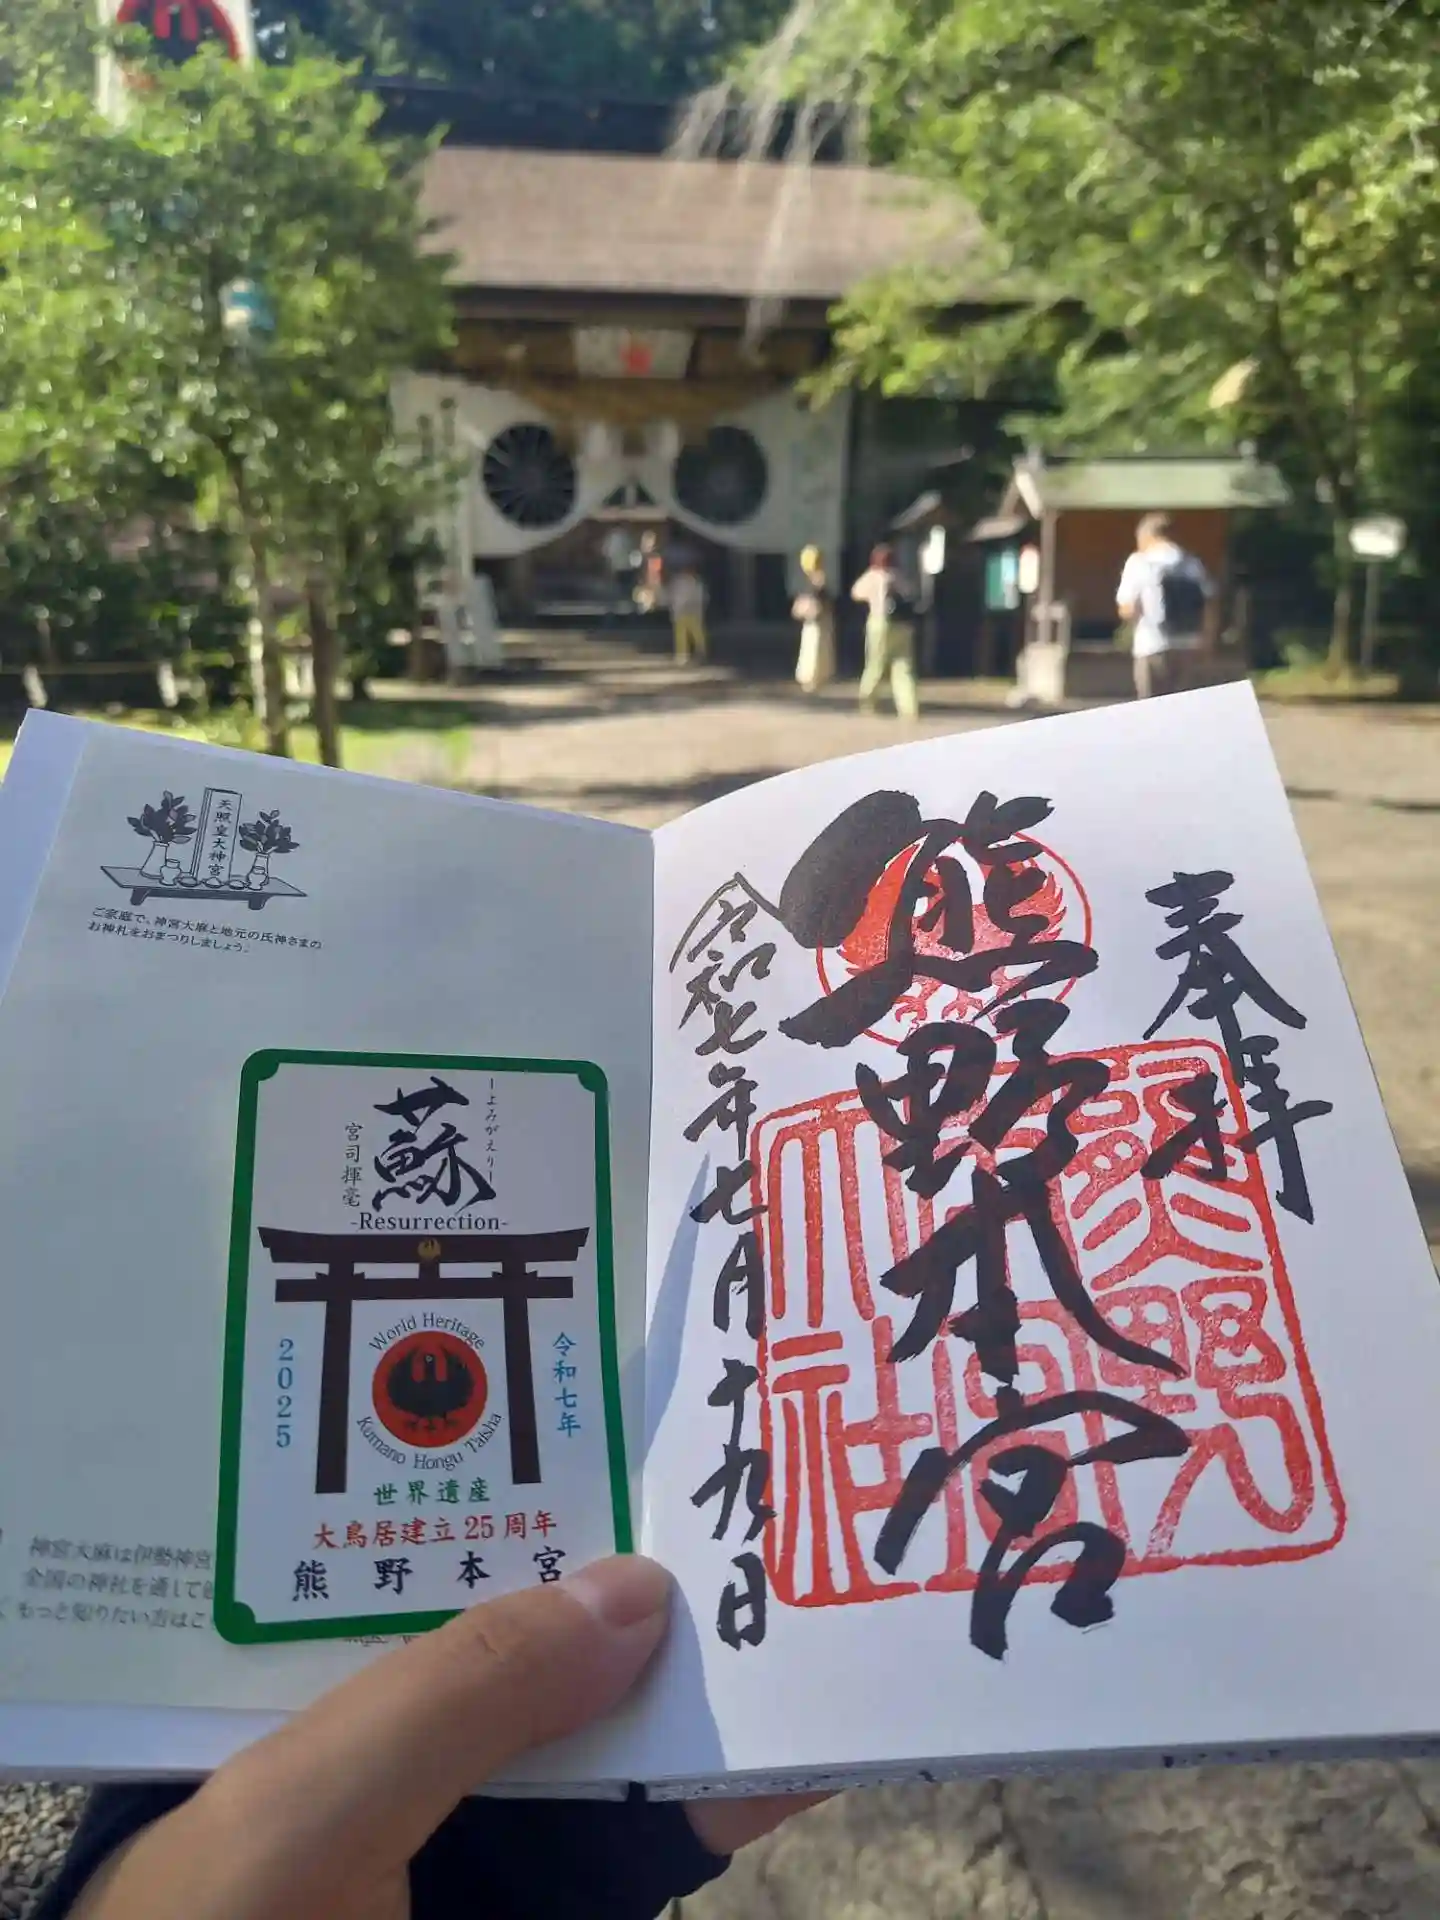 天照皇大神宮
ご家庭で、神宮大麻と地元の氏神さまの
お神札をおまつりしましょう。
蘇
－よみがえり－
宮司揮毫
-Resurrection-
World Heritage
Kumano Hongu Taisha
2025
令和七年
世界遺産
大鳥居建立25周年
熊野本宮
神宮大麻は伊勢神宮
全国の神社を通して
もっと知りたい方はこ
奉拝
熊野本宮
令和七年七月十九日